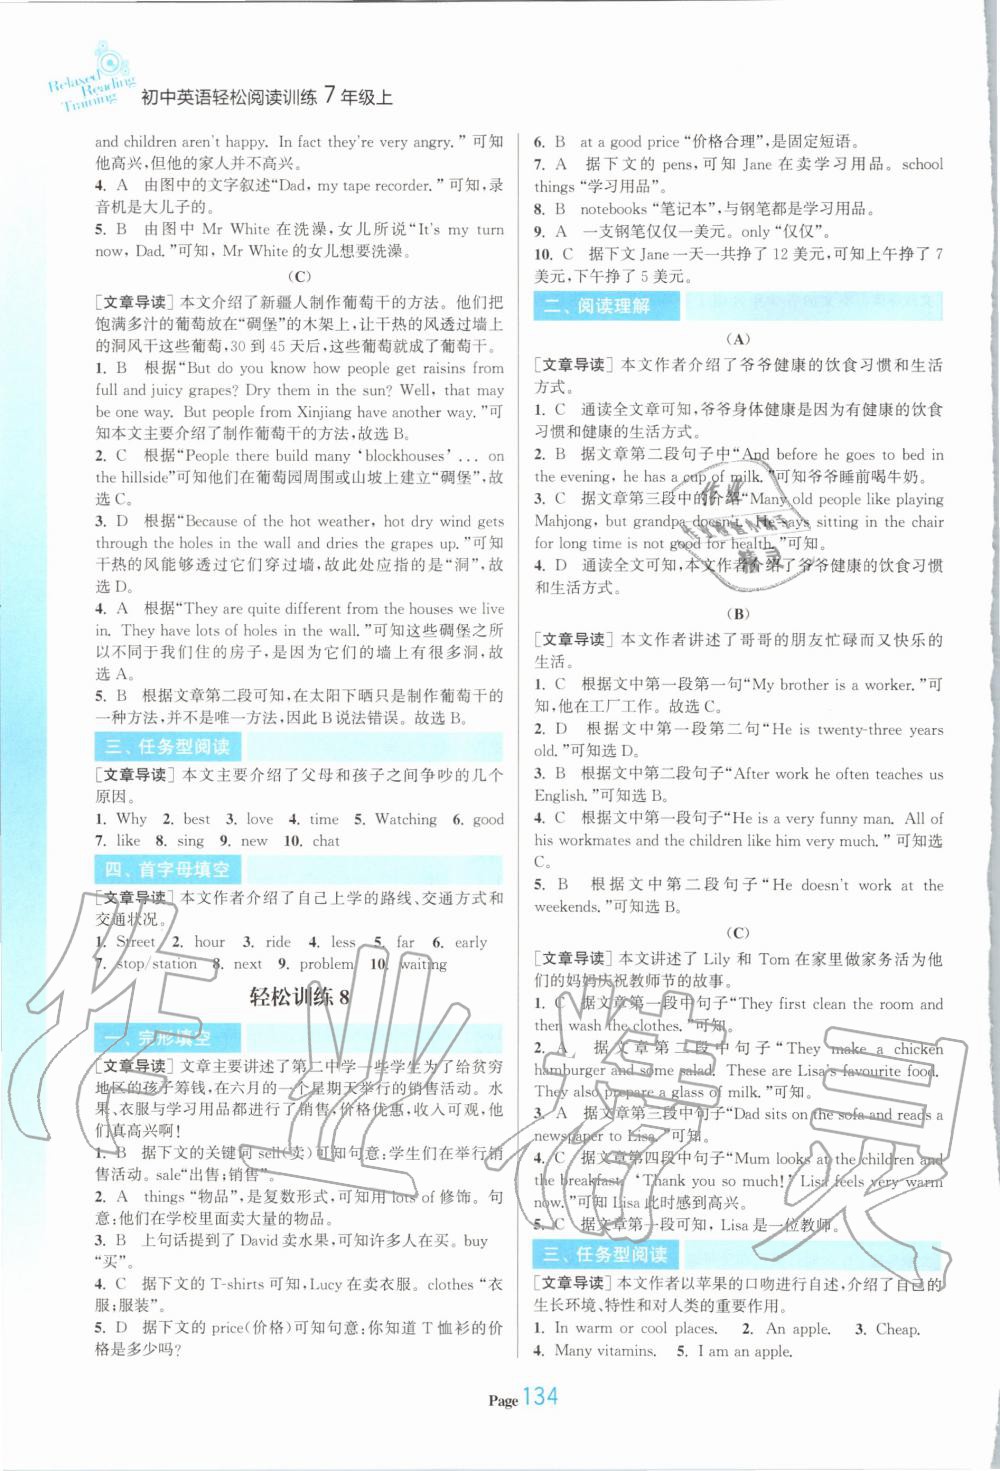 Relaxed
Reading
Training
初中英语轻松阅读训练 7年级上
and children aren't happy. In fact they're very angry. ”可知
他高兴，但他的家人并不高兴。
4. A 由图中的文字叙述“Dad, my tape recorder. ”可知，录
音机是大儿子的。
5. B 由图中 Mr White 在洗澡，女儿所说“It's my turn
now, Dad. ”可知，Mr White 的女儿想要洗澡。
(C)
[文章导读] 本文介绍了新疆人制作葡萄干的方法。他们把
饱满多汁的葡萄放在“碉堡”的木架上，让干热的风透过墙上
的洞风干这些葡萄，30 到 45 天后，这些葡萄就成了葡萄干。
1. B 根据“But do you know how people get raisins from
full and juicy grapes? Dry them in the sun? Well, that may
be one way. But people from Xinjiang have another way. ”可
知本文主要介绍了制作葡萄干的方法，故选 B。
2. C 根据“People there build many ‘blockhouses’... on
the hillside”可知他们在葡萄园周围或山坡上建立“碉堡”，故
选 C。
3. D 根据“Because of the hot weather, hot dry wind gets
through the holes in the wall and dries the grapes up. ”可知
干热的风能够透过它们穿过墙，故此处应指的是“洞”，故
选 D。
4. A 根据“They are quite different from the houses we live
in. They have lots of holes in the wall. ”可知这些碉堡之所
以不同于我们住的房子，是因为它们的墙上有很多洞，故
选 A。
5. B 根据文章第二段可知，在太阳下晒只是制作葡萄干的
一种方法，并不是唯一方法，因此 B 说法错误。故选 B。
三、任务型阅读
[文章导读] 本文主要介绍了父母和孩子之间争吵的几个
原因。
1. Why 2. best 3. love 4. time 5. Watching 6. good
7. like 8. sing 9. new 10. chat
四、首字母填空
[文章导读] 本文作者介绍了自己上学的路线、交通方式和
交通状况。
1. Street 2. hour 3. ride 4. less 5. far 6. early
7. stop/station 8. next 9. problem 10. waiting
轻松训练 8
一、完形填空
[文章导读] 文章主要讲述了第二中学一些学生为了给贫穷
地区的孩子筹钱，在六月的一个星期天举行的销售活动。水
果、衣服与学习用品都进行了销售，价格优惠，收入可观，他
们真高兴啊！
1. B 据下文的关键词 sell(卖)可知句意：学生们在举行销
售活动。sale“出售；销售”。
2. A things “物品”，是复数形式，可知用 lots of 修饰。句
意：他们在学校里面卖大量的物品。
3. B 上句话提到了 David 卖水果，可知他们来买。buy
“买”。
4. C 据下文的 T-shirts 可知，Lucy 在卖衣服。clothes “衣
服；服装”。
5. D 据下文的 price(价格)可知句意：你知道 T 恤衫的价
格是多少吗？
6. B at a good price “价格合理”，是固定短语。
7. A 据下文的 pens，可知 Jane 在卖学习用品。school
things “学习用品”。
8. B notebooks “笔记本”，与钢笔都是学习用品。
9. A 一支钢笔仅仅一美元。only “仅仅”。
10. C 据下文 Jane 一天一共挣了 12 美元，可知上午挣了 7
美元，下午挣了 5 美元。
二、阅读理解
(A)
[文章导读] 本文作者介绍了爷爷健康的饮食习惯和生活
方式。
1. C 通读全文章可知，爷爷身体健康是因为有健康的饮食
习惯和健康的生活方式。
2. B 据文章第二段句子中“And before he goes to bed in
the evening, he has a cup of milk. ”可知爷爷睡前喝牛奶。
3. C 据文章第三段中的介绍“Many old people like playing
Mahjong, but grandpa doesn't. He says sitting in the chair
for long time is not good for health. ”可知。
4. D 通读全文可知，本文作者介绍了爷爷健康的饮食习惯
和生活方式。
(B)
[文章导读] 本文作者讲述了哥哥的朋友忙碌而又快乐的
生活。
1. C 根据文中第一段第一句“My brother is a worker. ”可
知，他在工厂工作。故选 C。
2. D 根据文中第一段第二句“He is twenty-three years
old. ”可知选 D。
3. B 根据文中第二段句子“After work he often teaches us
English. ”可知选 B。
4. C 根据文中第二段句子“He is a very funny man. All of
his workmates and the children like him very much. ”可知选
C。
5. B 根据文中第二段句子“He doesn't work at the
weekends. ”可知选 B。
(C)
[文章导读] 本文讲述了 Lily 和 Tom 在家里做家务活为他
们的妈妈庆祝教师节的故事。
1. C 据文章第一段中句子“They first clean the room and
then wash the clothes. ”可知。
2. A 据文章第二段中句子“They make a chicken
hamburger and some salad. These are Lisa's favourite food.
They also prepare a glass of milk. ”可知。
3. A 据文章第三段中句子“Dad sits on the sofa and reads a
newspaper to Lisa. ”可知。
4. C 据文章第四段中句子“Mum looks at the children and
the breakfast. ‘Thank you so much!’ Lisa feels very warm
now. ”可知 Lisa 此时感到高兴。
5. C 据文章第一段可知，Lisa 是一位教师。
三、任务型阅读
[文章导读] 本文作者以苹果的口吻进行自述，介绍了自己的
生长环境、特性和对人类的重要作用。
1. In warm or cool places. 2. An apple. 3. Cheap.
4. Many vitamins. 5. I am an apple.
Page 134
作业精灵